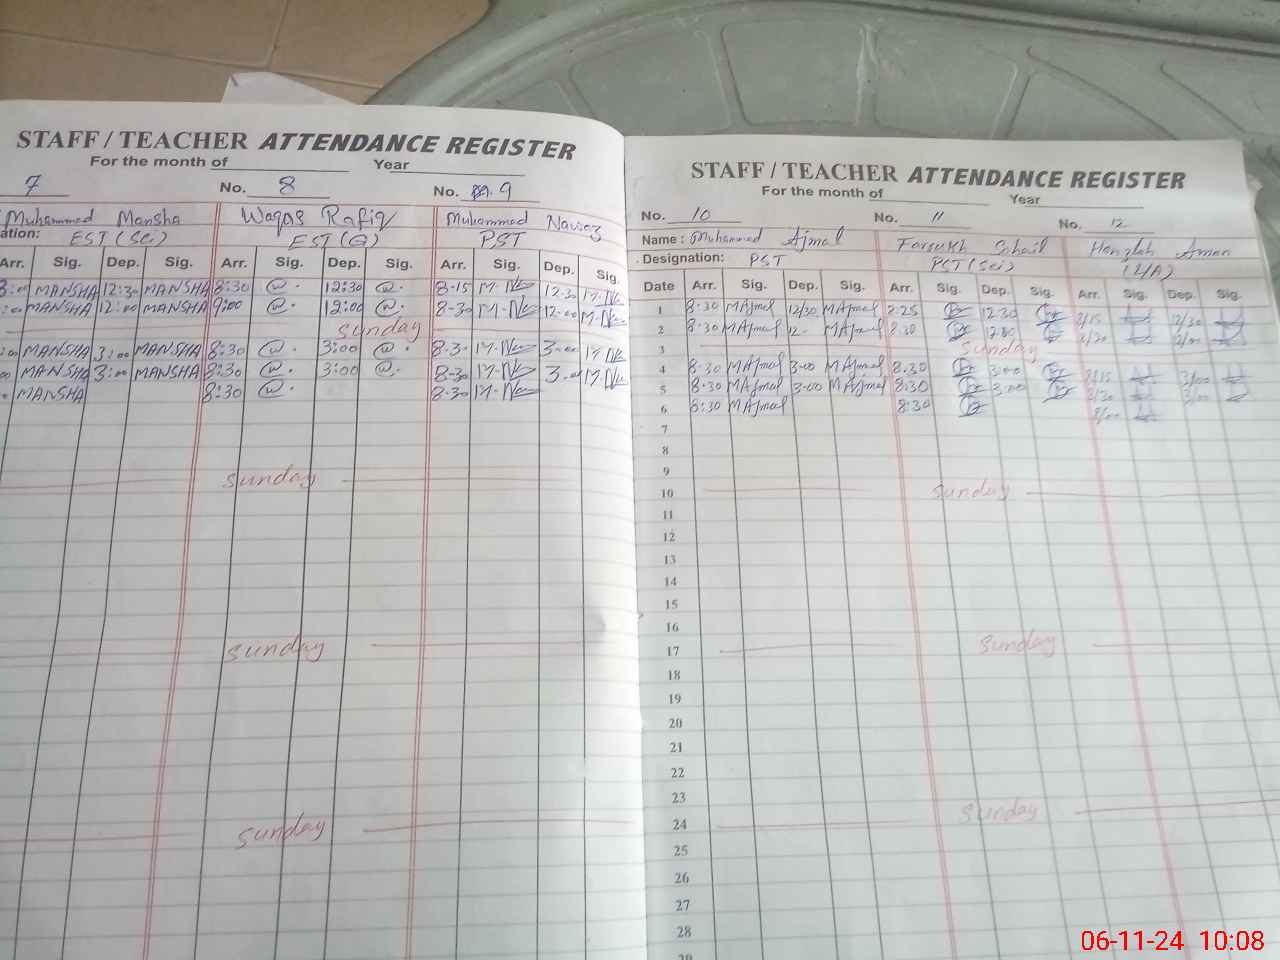 STAFF / TEACHER ATTENDANCE REGISTER
For the month of Year
7 No. 8 No. 9
Muhammad Mansha Waqas Rafiq Muhammad Nawaz
ation: EST (Sci) EST (G) PST
Arr. Sig. Dep. Sig. Arr. Sig. Dep. Sig. Arr. Sig. Dep. Sig.
8:00 MANSHA 12:30 MANSHA 8:30 @. 12:30 @. 8-15 12-30
:00 MANSHA 12:00 MANSHA 9:00 @. 12:00 @. 8-30 12-00
sunday
:00 MANSHA 3:00 MANSHA 8:30 @. 3:00 @. 8-30 3-00
00 MANSHA 3:00 MANSHA 8:30 @. 3:00 @. 8-30 3-00
MANSHA 8:30 @. 8-30
sunday
sunday
sunday
STAFF / TEACHER ATTENDANCE REGISTER
For the month of Year
No. 10 No. 11 No. 12
Name: Muhammad Ajmal Farrukh Sohail Hanzlah Aman
Designation: PST PST (Sci)
Date Arr. Sig. Dep. Sig. Arr. Sig. Dep. Sig. Arr. Sig. Dep. Sig.
1 8-30 MAjmal 12/30 MAjmal 8:25 12:30 8/15 12/30
2 8-30 MAjmal 12- MAjmal 8:30 12:00 8/30 12/00
3 sunday
4 8-30 MAjmal 3-00 MAjmal 8:30 3:00 8/15 3/00
5 8-30 MAjmal 3-00 MAjmal 8:30 3:00 8/30 3/00
6 8:30 MAjmal 8:30 8/00
7
8
9
10 sunday
11
12
13
14
15
16
17 sunday
18
19
20
21
22
23
24 sunday
25
26
27
28
06-11-24 10:08